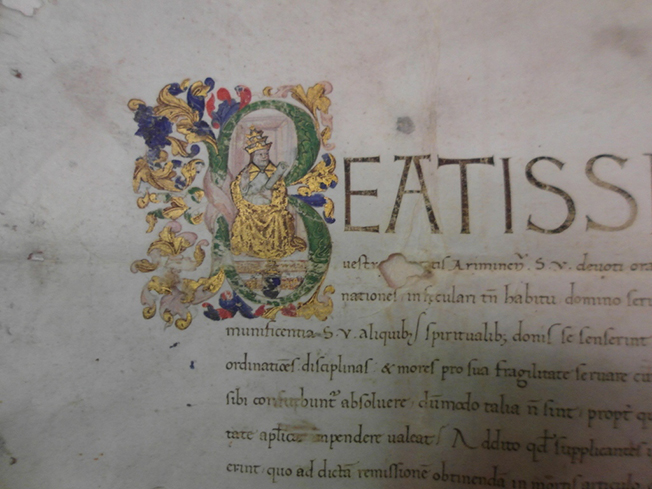 BEATISSI
Ariminen̄. S. V. deuoti ora
nationes in seculari tn̄ habitu domino seru
munificentia S. V. Aliquibȝ spiritualibȝ donis se senserint
ordinatiōes disciplinas & mores pro sua fragilitate seruare
sibi absoluere, dūmodo talia n̄ sint, propt̄ q
tate ap̄lica īpendere ualeat. Addito qd̄ supplicantes
erint, quo ad dictā remissionē obtinendā in mortis articulo